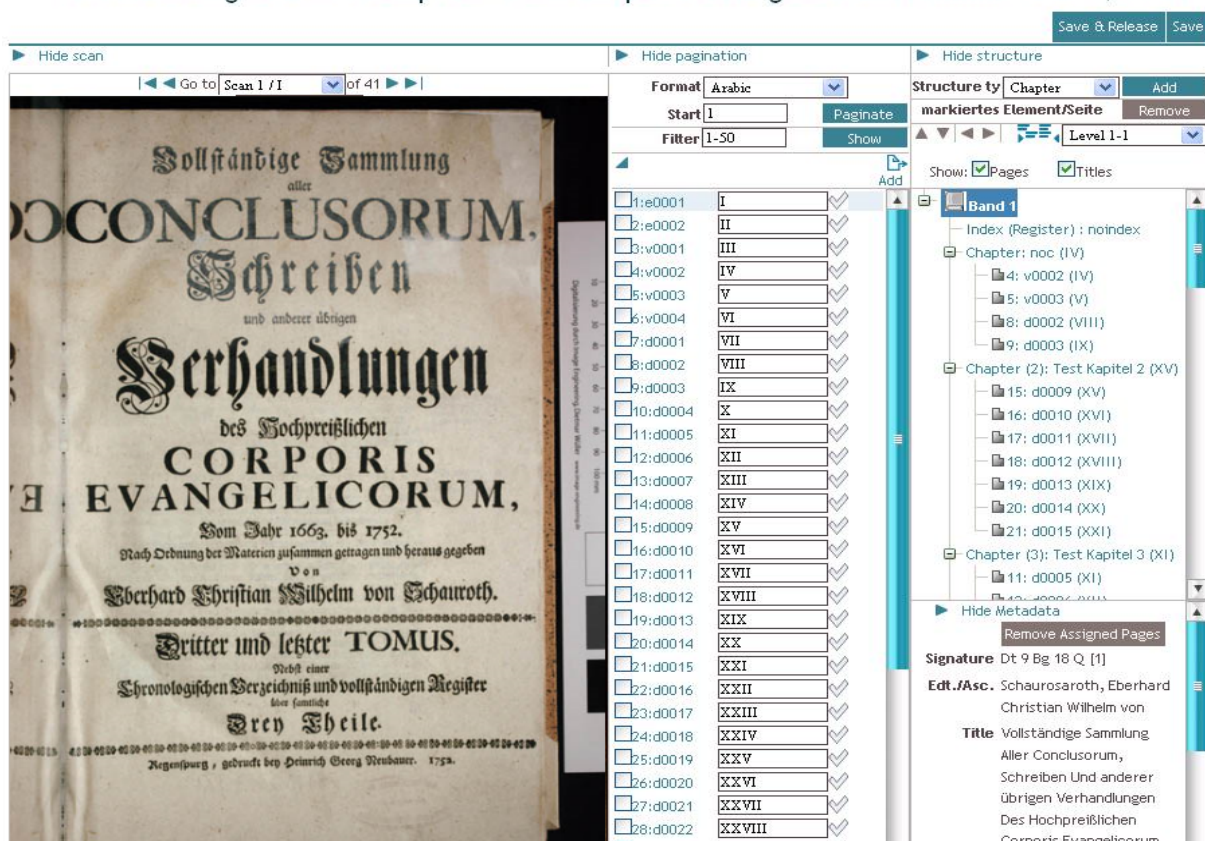 Save & Release
Save
Hide scan
Go to Scan 1 / I of 41
Vollständige Sammlung
aller
CONCLUSORUM,
Schreiben
und anderer übrigen
Verhandlungen
des Hochpreißlichen
CORPORIS
EVANGELICORUM,
Vom Jahr 1663. bis 1752.
Nach Ordnung der Materien zusammen getragen und heraus gegeben
Von
Eberhard Christian Wilhelm von Schauroth.
Dritter und letzter TOMUS.
Nebst einer
Chronologischen Verzeichniß und vollständigen Register
über samtliche
Drey Theile.
Regenspurg, gedruckt bey Heinrich Georg Neubauer. 1752.
Hide pagination
Format Arabic
Start 1 Paginate
Filter 1-50 Show
Add
1:e0001 I
2:e0002 II
3:v0001 III
4:v0002 IV
5:v0003 V
6:v0004 VI
7:d0001 VII
8:d0002 VIII
9:d0003 IX
10:d0004 X
11:d0005 XI
12:d0006 XII
13:d0007 XIII
14:d0008 XIV
15:d0009 XV
16:d0010 XVI
17:d0011 XVII
18:d0012 XVIII
19:d0013 XIX
20:d0014 XX
21:d0015 XXI
22:d0016 XXII
23:d0017 XXIII
24:d0018 XXIV
25:d0019 XXV
26:d0020 XXVI
27:d0021 XXVII
28:d0022 XXVIII
Hide structure
Structure ty Chapter Add
markiertes Element/Seite Remove
Level 1-1
Show: Pages Titles
Band 1
Index (Register) : noindex
Chapter: noc (IV)
4: v0002 (IV)
5: v0003 (V)
8: d0002 (VIII)
9: d0003 (IX)
Chapter (2): Test Kapitel 2 (XV)
15: d0009 (XV)
16: d0010 (XVI)
17: d0011 (XVII)
18: d0012 (XVIII)
19: d0013 (XIX)
20: d0014 (XX)
21: d0015 (XXI)
Chapter (3): Test Kapitel 3 (XI)
11: d0005 (XI)
Hide Metadata
Remove Assigned Pages
Signature Dt 9 Bg 18 Q [1]
Edt./Asc. Schaurosaroth, Eberhard
Christian Wilhelm von
Title Vollständige Sammlung
Aller Conclusorum,
Schreiben Und anderer
übrigen Verhandlungen
Des Hochpreißlichen
Corporis Evangelicorum